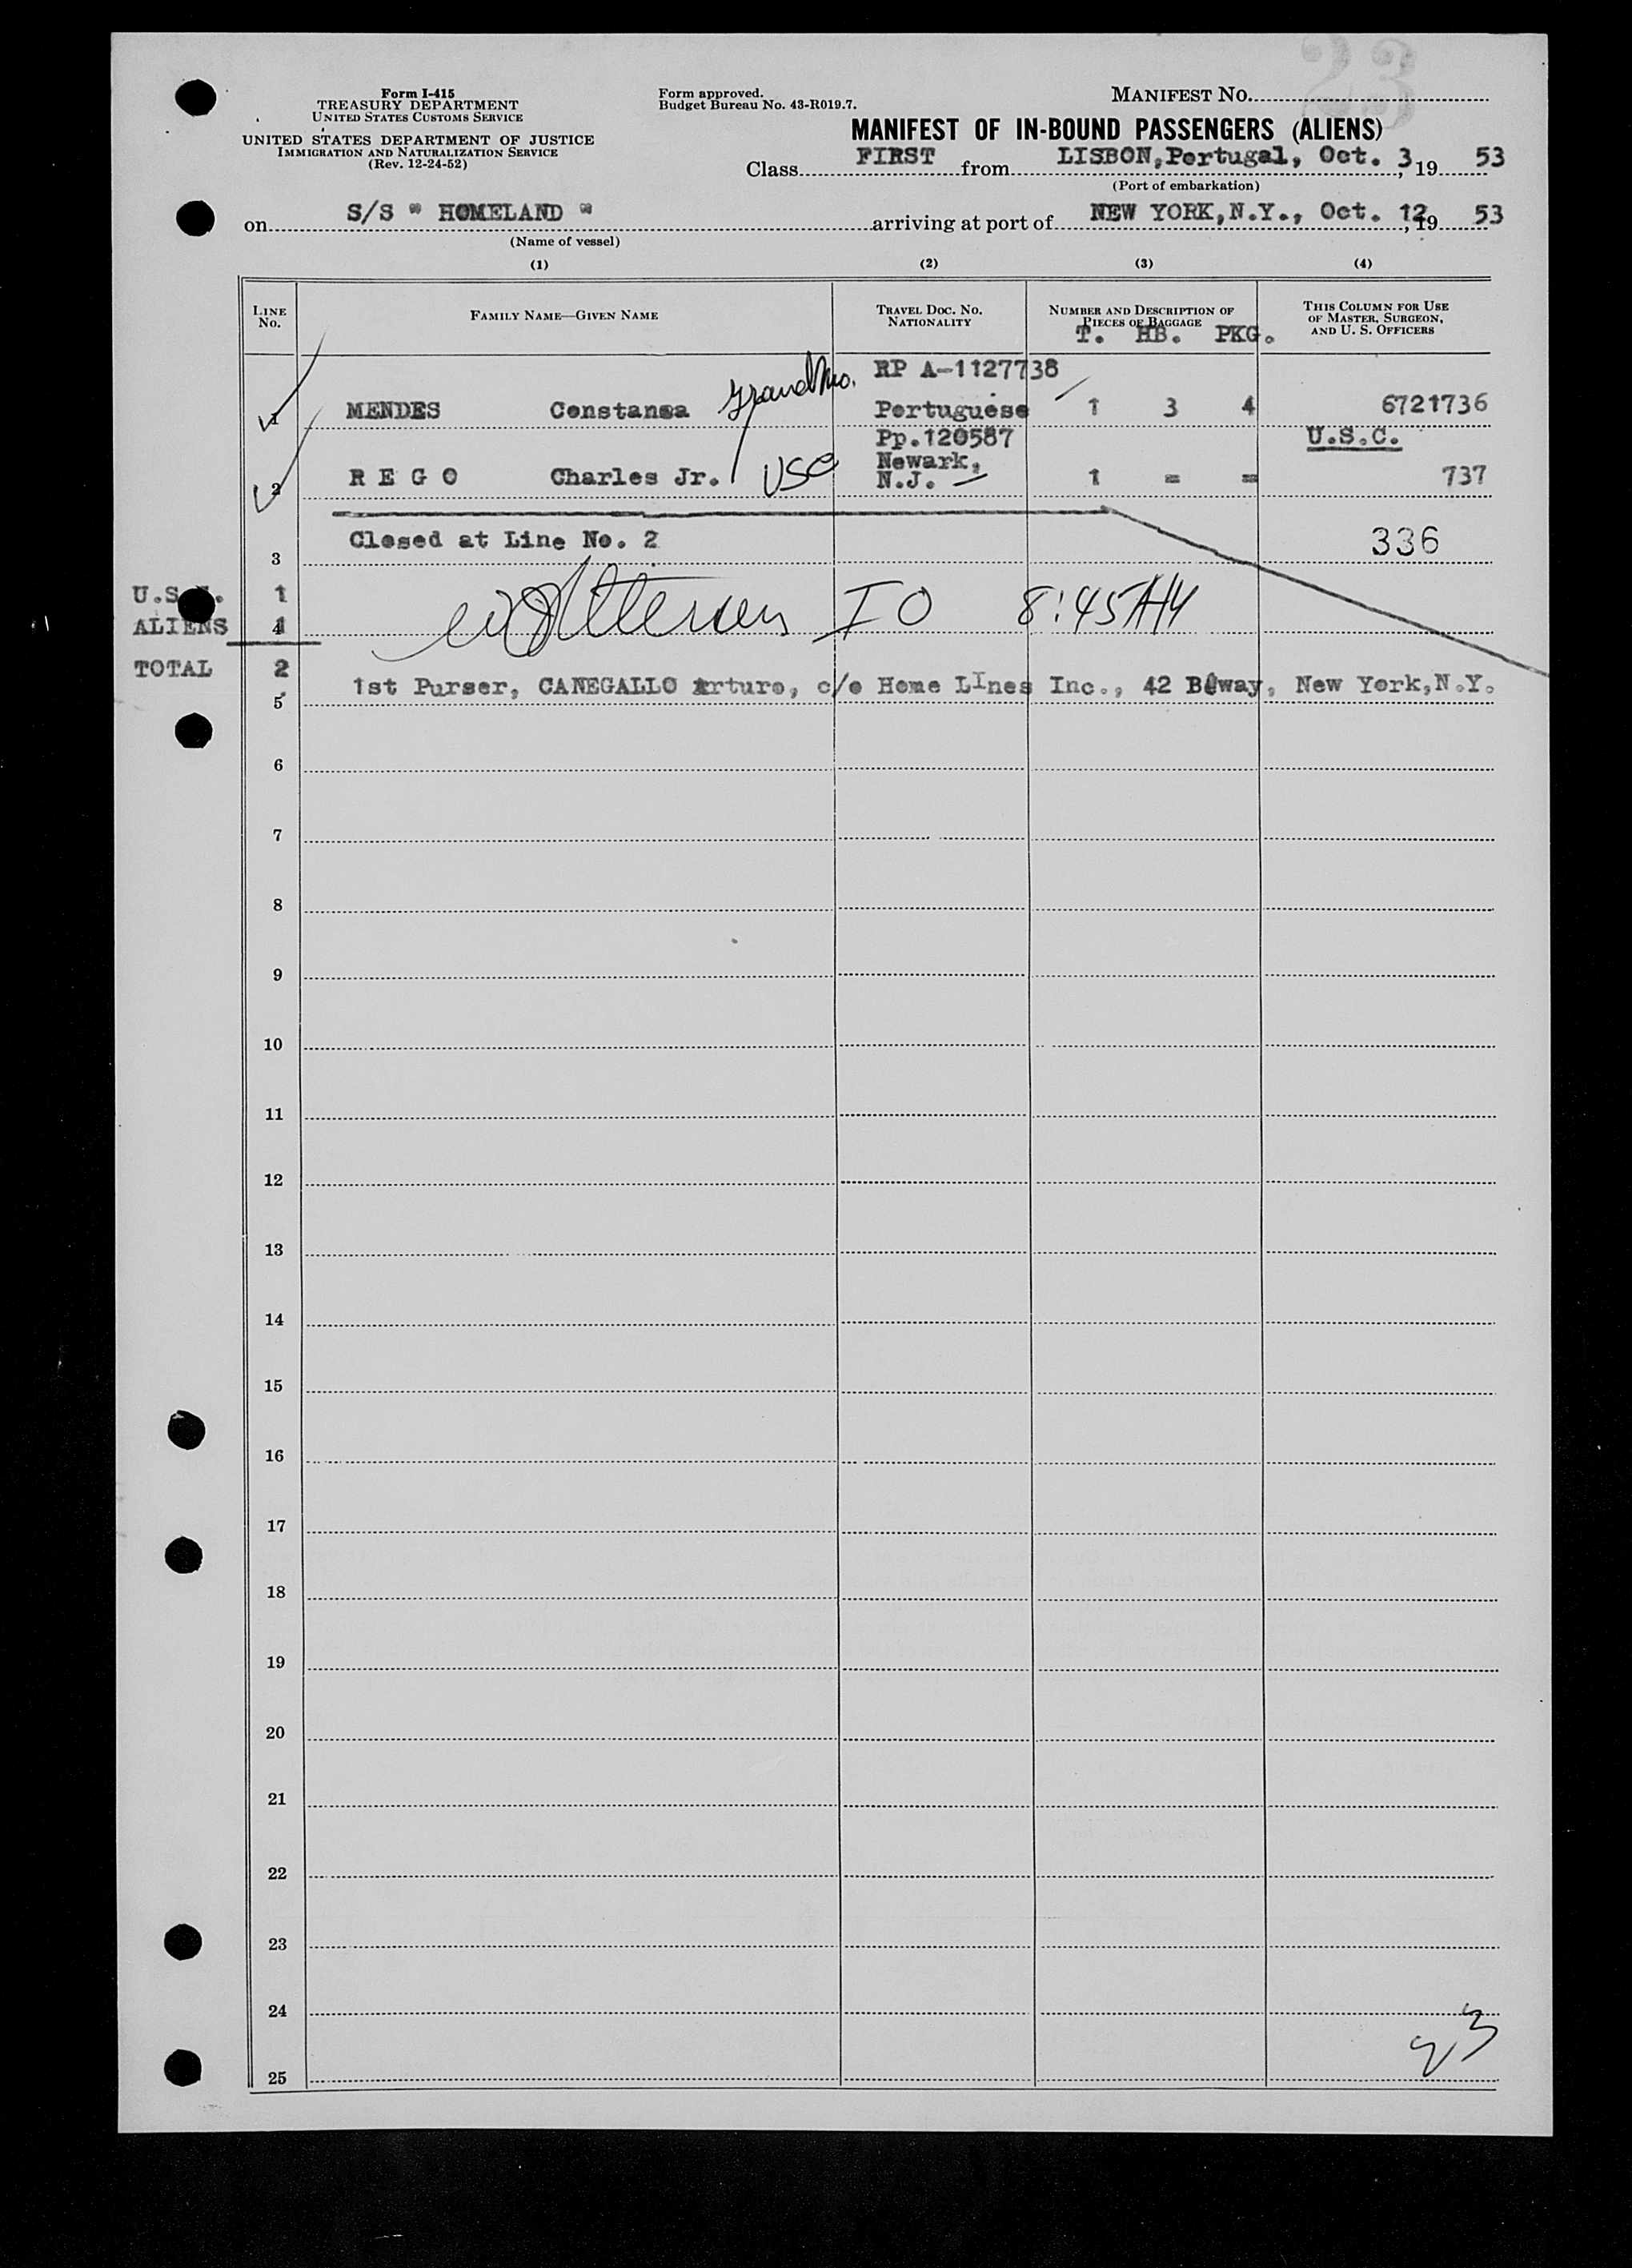 23
Form I-415
TREASURY DEPARTMENT
UNITED STATES CUSTOMS SERVICE
UNITED STATES DEPARTMENT OF JUSTICE
IMMIGRATION AND NATURALIZATION SERVICE
(Rev. 12-24-52)
Form approved.
Budget Bureau No. 43-R019.7.
MANIFEST NO.
MANIFEST OF IN-BOUND PASSENGERS (ALIENS)
Class FIRST from LISBON, Portugal, Oct. 3, 19 53
(Port of embarkation)
on S/S " HOMELAND " arriving at port of NEW YORK, N.Y., Oct. 12, 19 53
(Name of vessel)
(1) (2) (3) (4)
LINE No. FAMILY NAME—GIVEN NAME TRAVEL DOC. NO. NATIONALITY NUMBER AND DESCRIPTION OF PIECES OF BAGGAGE THIS COLUMN FOR USE OF MASTER, SURGEON, AND U. S. OFFICERS
T. HB. PKG.
RP A-1127738
1 MENDES Constansa Grandmo. Portuguese 1 3 4 6721736
Pp.120587 U.S.C.
Newark,
2 R E G O Charles Jr. USC N.J. 1 = = 737
3 Closed at Line No. 2 336
U.S.C. 1
ALIENS 1 4 IO 8:45AM
TOTAL 2
5 1st Purser, CANEGALLO Arturo, c/o Home LInes Inc., 42 B@way, New York,N.Y.
6
7
8
9
10
11
12
13
14
15
16
17
18
19
20
21
22
23
24
25
23